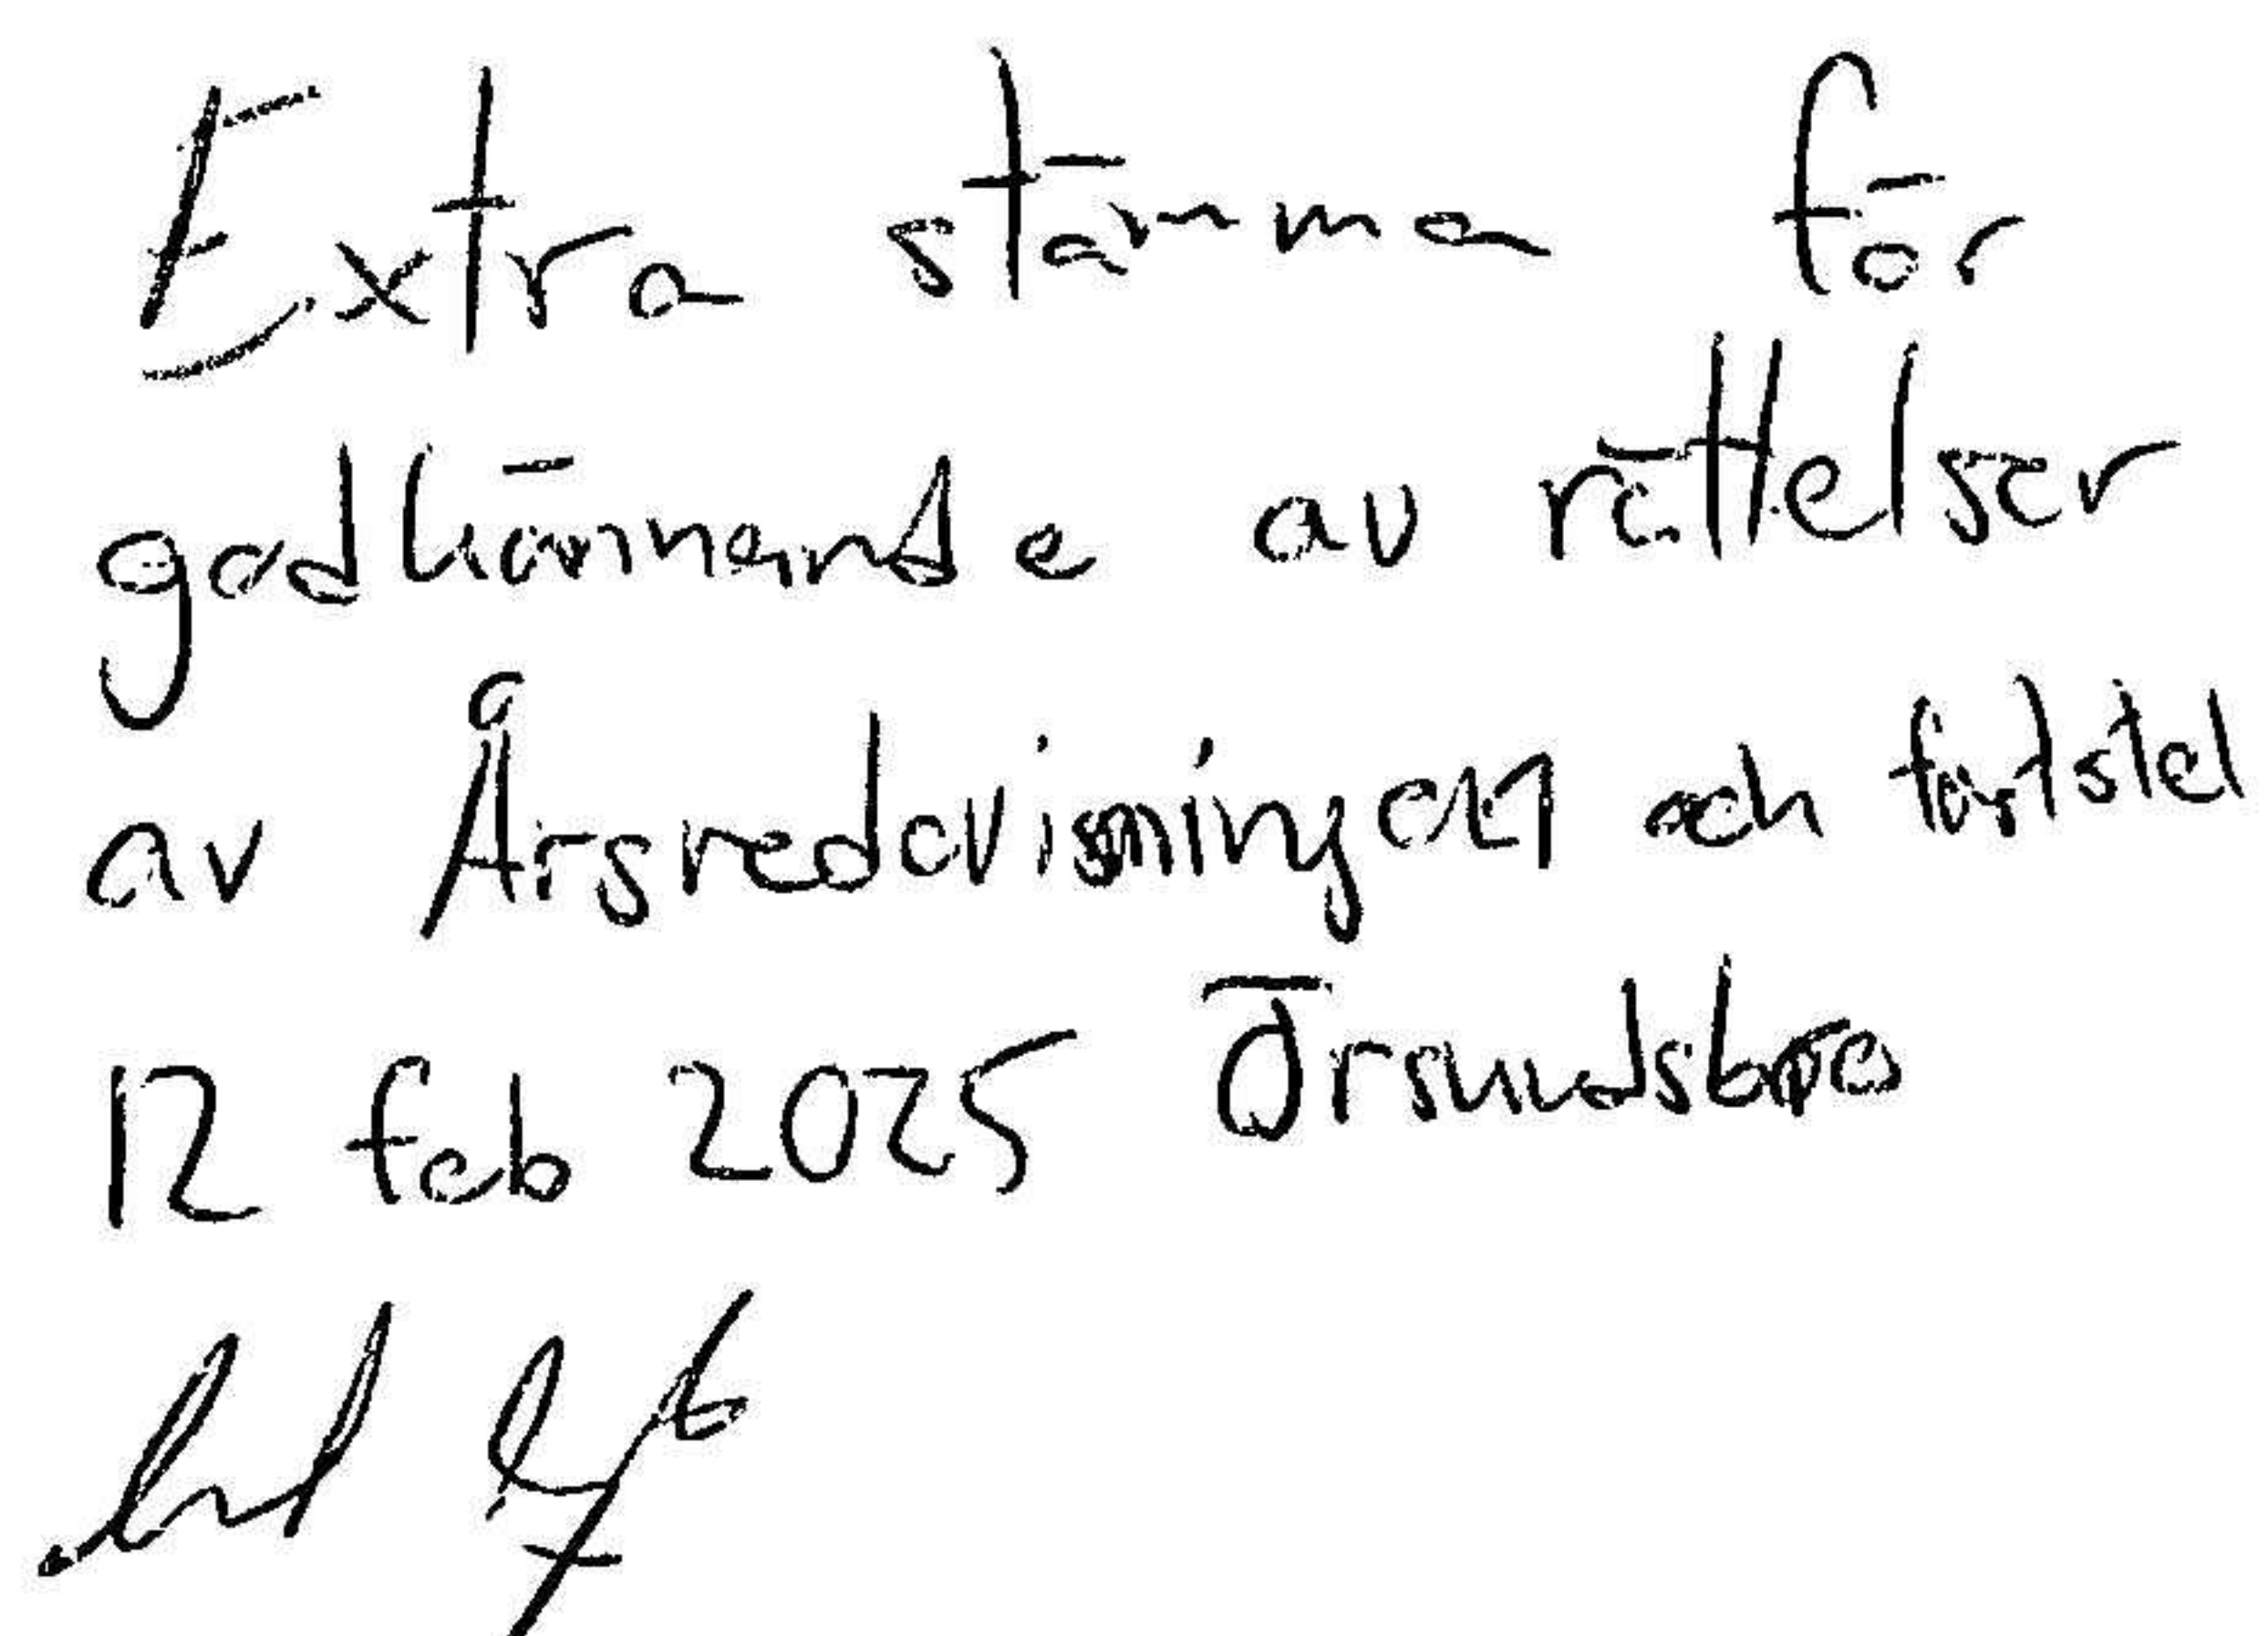 Extra stämma för
godkännande av rättelser
av Årsredovisningen och
12 feb 2025 Örsundsbro